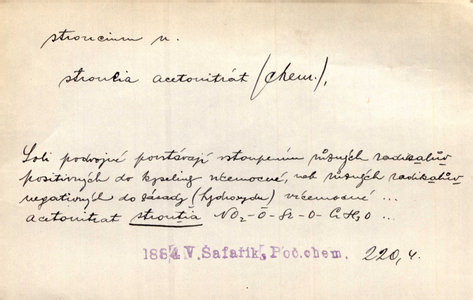 stroncium n.
strontia acetonitrát (chem.),
Soli podvojné povstávají vstoupením různých radikalův
positivných do kyseliny vícemocné, neb různých radikalův
negativných do zásady (hydroxydu) vícemocné ...
acetonitrat strontia NO2-O-Sr-O-C2H3O ...
1884 V. Šafařík, Poč.chem. 220,4.